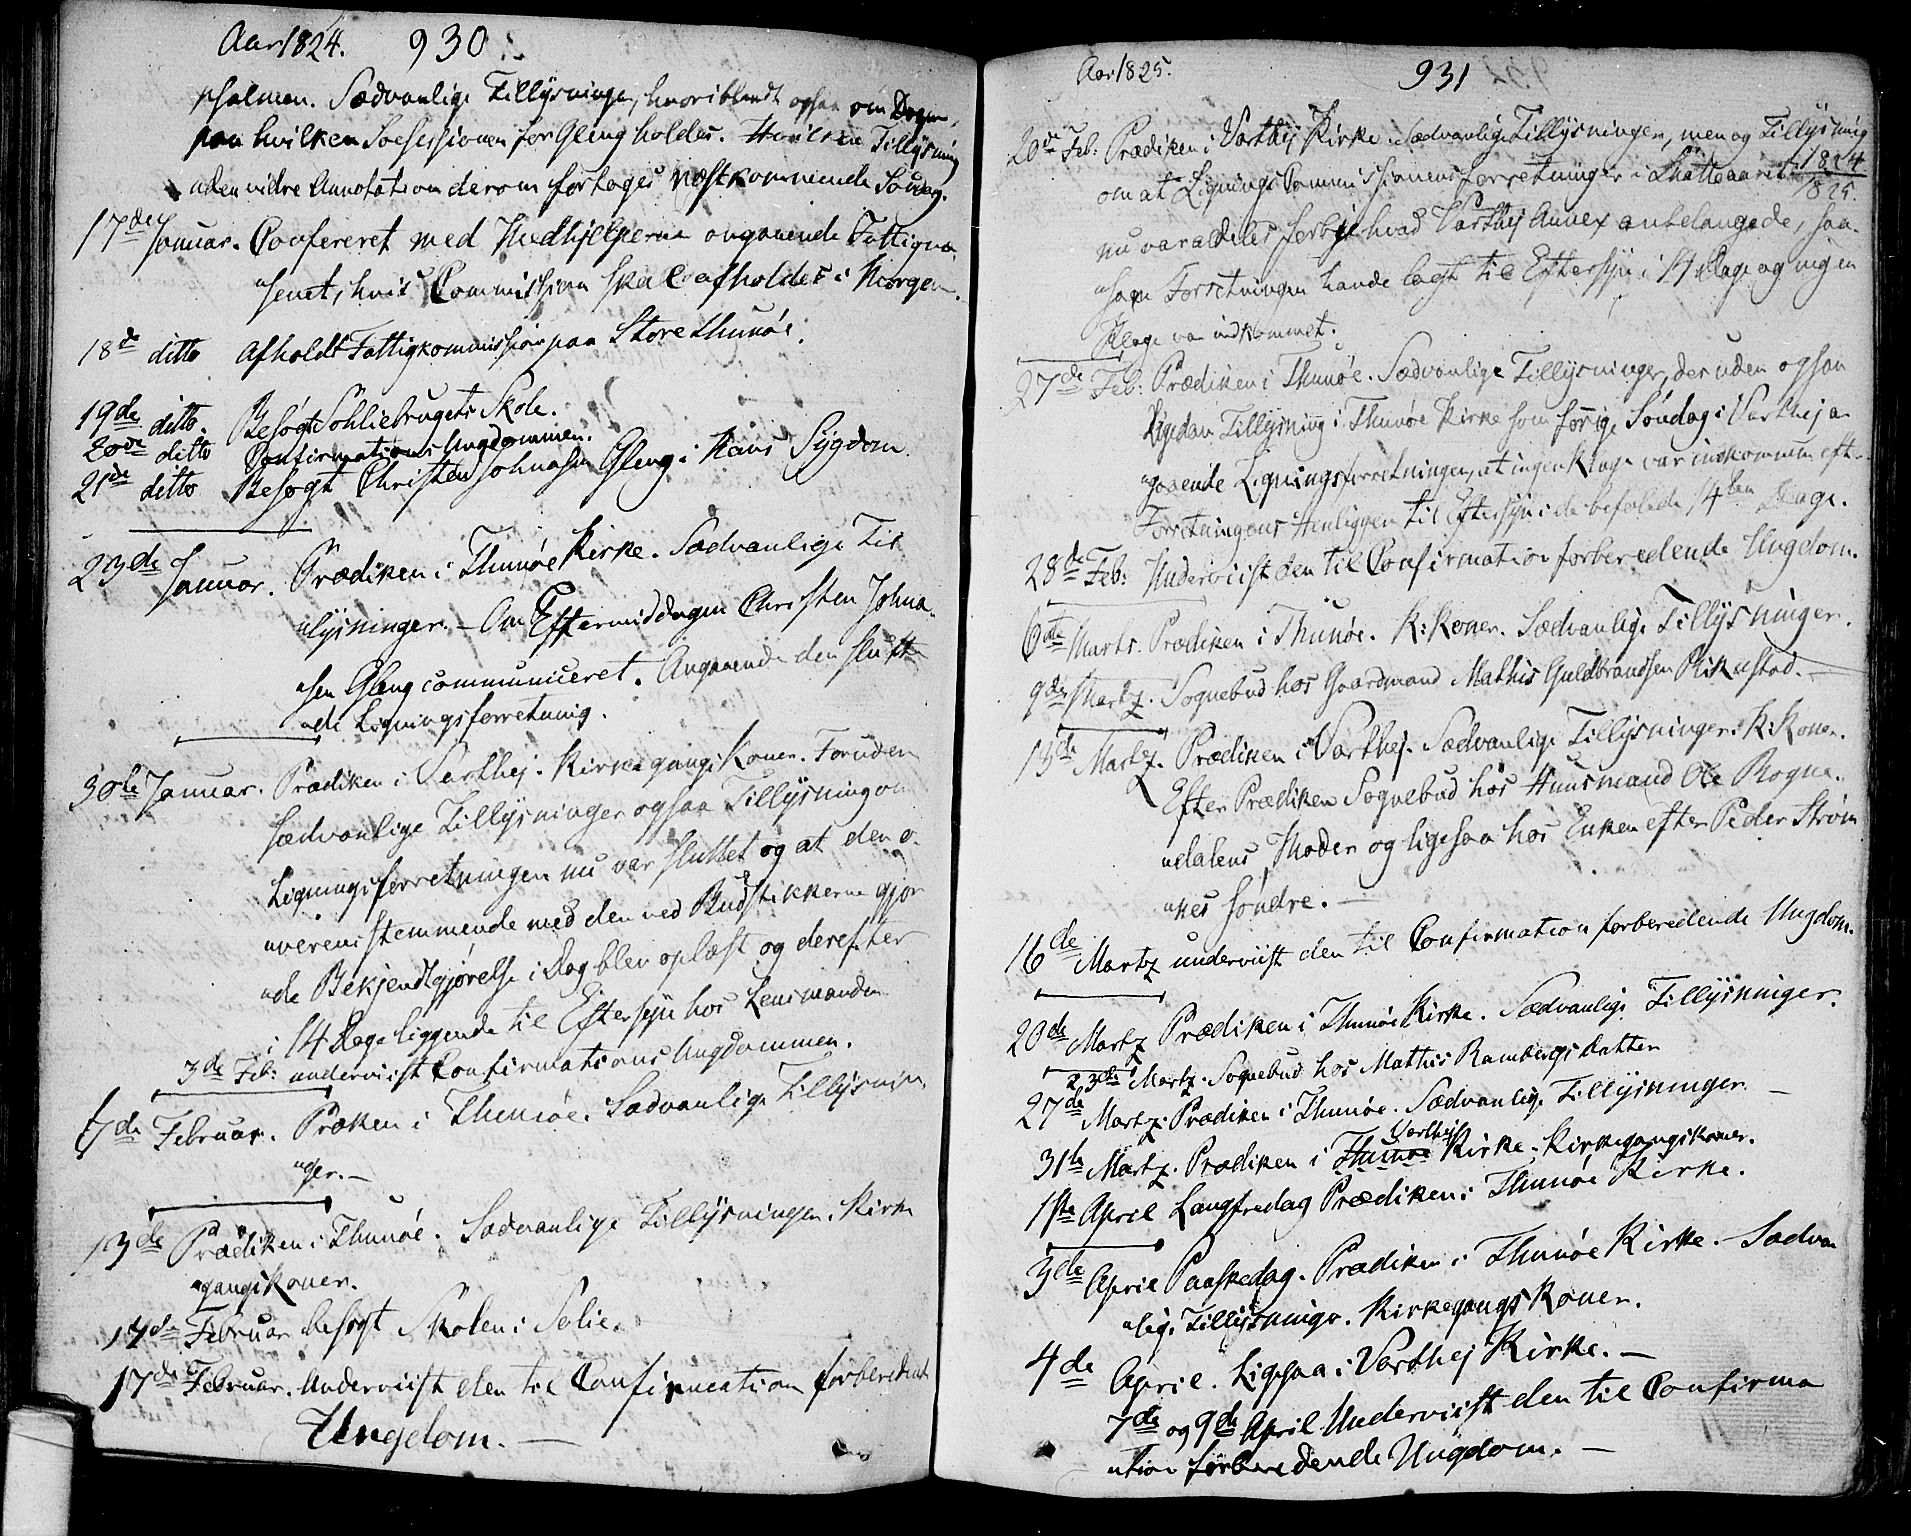 Aar 1824. 930
psalmen. Sædvanlige Tillysninger, hvoriblandt ogsaa om Dagen,
paa hvilken Soesessionen for Gleng holdes. Hvilken Tillysning
uden vidre Annotation derom fortages næstkommende Søndag.
17de Januar. Confereret med Medhjelperne angaaende Fattigvæ-
senet, hvis Commission skal afholdes i Morgen.
18de ditto afholdt Fattigkommission paa Store Thunøe.
19de ditto. Besøgt Sohliebrugets Skole.
20de ditto Confirmations Ungdommen.
21de ditto Besøgt Christen Johnsen Gleng i Hans Sygdom.
23de Januar. Prædiken i Thunøe Kirke. Sædvanlige Til
lysninger. - Om Eftermiddagen Christen Johna-
sen Gleng communiceret. Angaaende den slutte
nde Ligningsforretning.
30te Januar. Prædiken i Varthej. Kirkegangs Koner. Foruden
sædvanlige Tillysninger ogsaa Tillysning om
Ligningsforretningen nu var sluttet og at den o-
verensstemmende med den ved Budstikkerne gjor
nde Bekjendtgjørelse i Dag blev oplæst og derefter
i 14 Dage liggende til Eftersyn hos Lensmanden
3de Feb: underviist Confirmations Ungdommen.
6de Februar. Præken i Thunøe. Sædvanlige Tillysnin
ger. -
13de Prædiken i Thunøe. Sædvanlige Tillysninger. Kirke
gangskoner.
14de Februar besøgt Skolen i Solie.
17de Februar. Underviist den til Confirmation forberedende
Ungdom. -
Aar 1825. 931
20de Feb: Prædiken i Varthej Kirke. Sædvanlige Tillysninger, men og Tillysning
om at Lignings Commissionens forretninger i Skatteaaret 1824
1825.
nu var aldeles forbi hvad Varthej Annex anbelangede, saa-
som Forretningen havde lagt til Eftersyn i 14 Dage og ingen
Klage var indkommet.
27de Feb: Prædiken i Thunøe. Sædvanlige Tillysninger, der uden ogsaa
ligedan Tillysning i Thunøe Kirke som forrige Søndag i Varthej an
gaaende Ligningsforretningen, at ingen Klage var indkommen efter
Forretningens Henliggen til Eftersyn i de befalede 14ten Dage.
28de Feb: Underviist den til Confirmation forberedende Ungdom.
6te Marts. Prædiken i Thunøe. K: Koner. Sædvanlige Tillysninger.
9de Martz. Sognebud hos Gaardmand Mathis Guldbrandsen Rikustad. -
13de Martz. Prædiken i Varthej. Sædvanlige Tillysninger. K: Koner.
Efter Prædiken Sognebud hos Huusmand Ole Rogne-
dalens Moder og ligesaa hos Enken efter Peder Strøm
nes søndre. -
16de Martz underviist den til Confirmation forberedende Ungdom.
20de Martz Prædiken i Thunøe Kirke. Sædvanlige Tillysninger.
23de Martz. Sognebud hos Mathis Rambergs datter
27de Martz. Prædiken i Thunøe. Sædvanlige Tillysninger. -
31te Martz. Prædiken i Thunøe Varthej Kirke. Kirkegangskoner.
1ste April Langfredag Prædiken i Thunøe Kirke.
3de April Paaskedag. Prædiken i Thunøe Kirke. Sædvan
lige Tillysninger. Kirkegangs Koner.
4de April. Ligesaa i Varthej Kirke. -
7de og 9de April Underviist den til Confirma
tion forberedende Ungdom. -